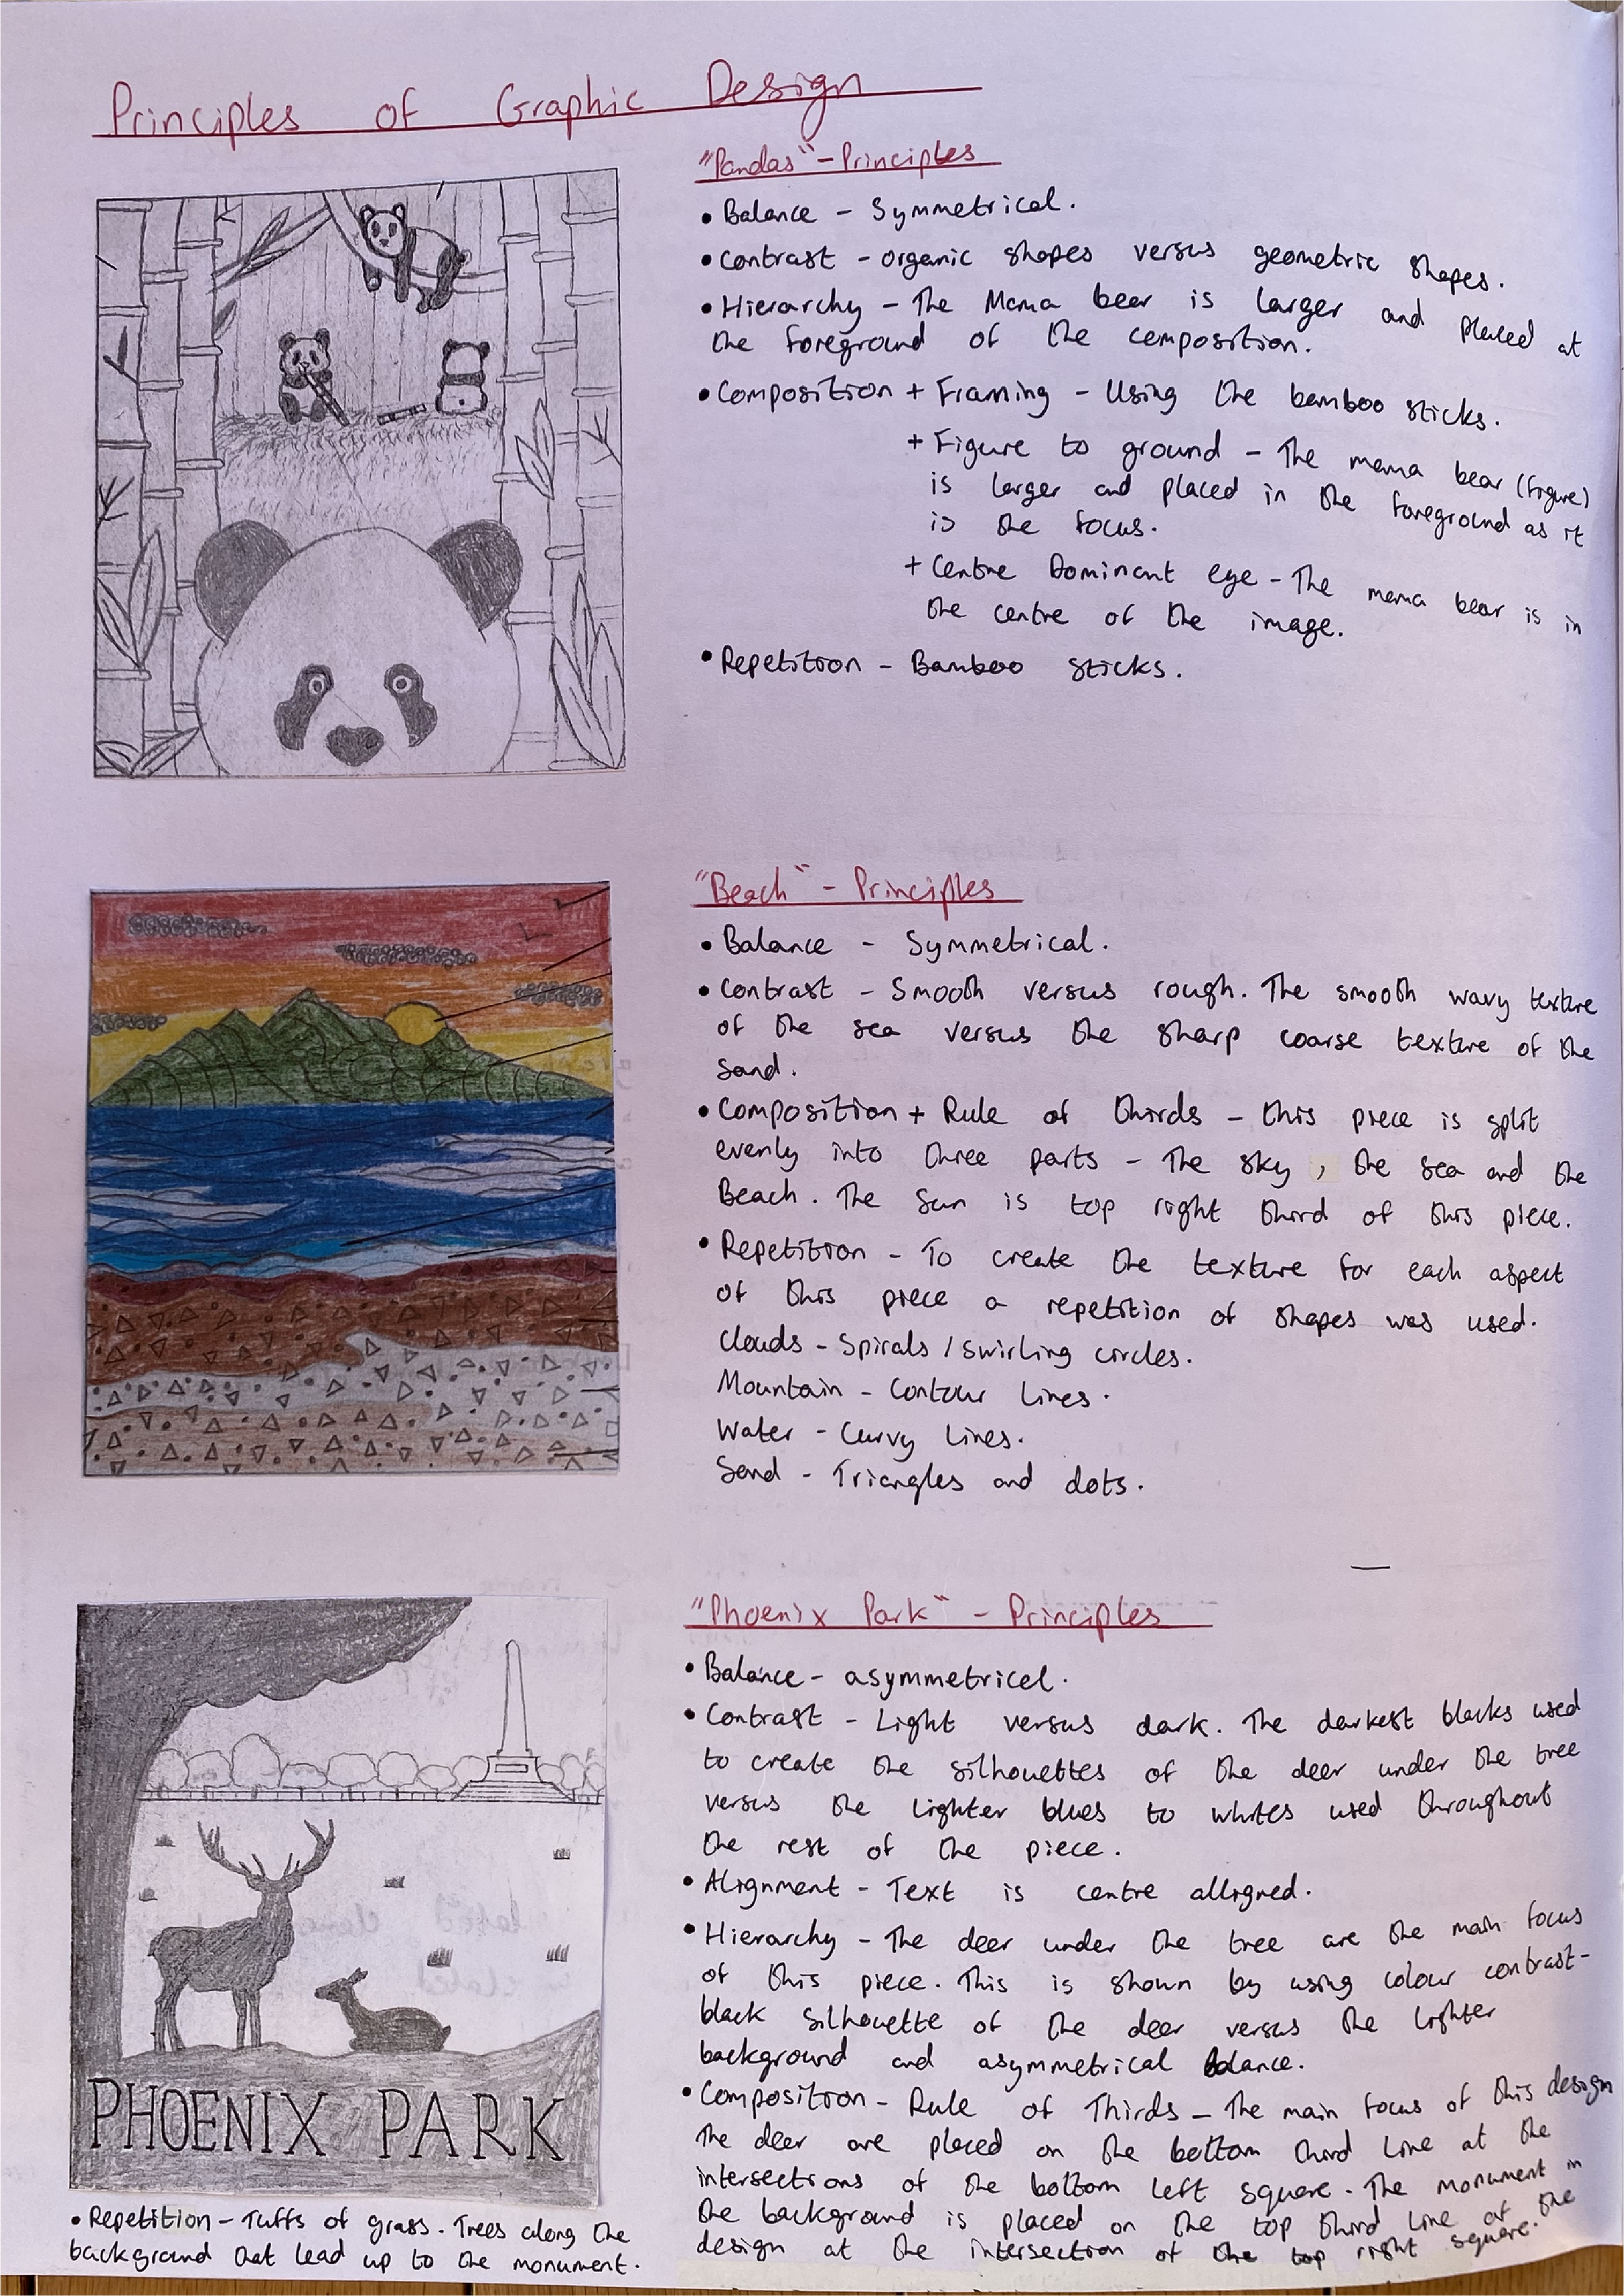 Principles of Graphic Design
"Pandas" - Principles
• Balance - Symmetrical.
• Contrast - organic shapes versus geometric shapes.
• Hierarchy - The Mama bear is larger and placed at
the foreground of the composition.
• Composition + Framing - Using the bamboo sticks.
+ Figure to ground - The mama bear (figure)
is larger and placed in the foreground as it
is the focus.
+ Centre Dominant eye - The mama bear is in
the centre of the image.
• Repetition - Bamboo sticks.
"Beach" - Principles
• Balance - Symmetrical.
• Contrast - Smooth versus rough. The smooth wavy texture
of the sea versus the sharp coarse texture of the
sand.
• Composition + Rule of thirds - this piece is split
evenly into three parts - The sky, the sea and the
Beach. The sun is top right third of this piece.
• Repetition - To create the texture for each aspect
of this piece a repetition of shapes was used.
Clouds - Spirals / swirling circles.
Mountain - Contour lines.
Water - Curvy lines.
Sand - Triangles and dots.
"Phoenix Park" - Principles
• Balance - asymmetrical.
• Contrast - Light versus dark. The darkest blacks used
to create the silhouettes of the deer under the tree
versus the lighter blues to whites used throughout
the rest of the piece.
• Alignment - Text is centre alligned.
• Hierarchy - The deer under the tree are the main focus
of this piece. This is shown by using colour contrast -
black silhouette of the deer versus the lighter
background and asymmetrical balance.
• Composition - Rule of Thirds - The main focus of this design
the deer are placed on the bottom third line at the
intersections of the bottom left square. The monument in
the background is placed on the top third line of the
design at the intersection of the top right square.
PHOENIX PARK
• Repetition - Tuffs of grass. Trees along the
background that lead up to the monument.